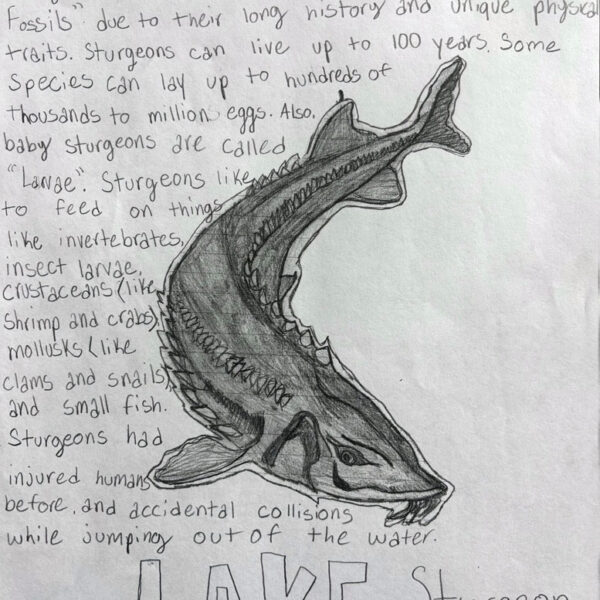 Fossils" due to their long history and unique physical
traits. Sturgeons can live up to 100 years. Some
Species can lay up to hundreds of
thousands to million eggs. Also,
baby sturgeons are called
"Larvae". Sturgeons like
to feed on things
like invertebrates,
insect larvae,
crustaceans (like
shrimp and crabs),
mollusks (like
clams and snails),
and small fish.
Sturgeons had
injured humans
before, and accidental collisions
while jumping out of the water.
LAKE Sturgeon